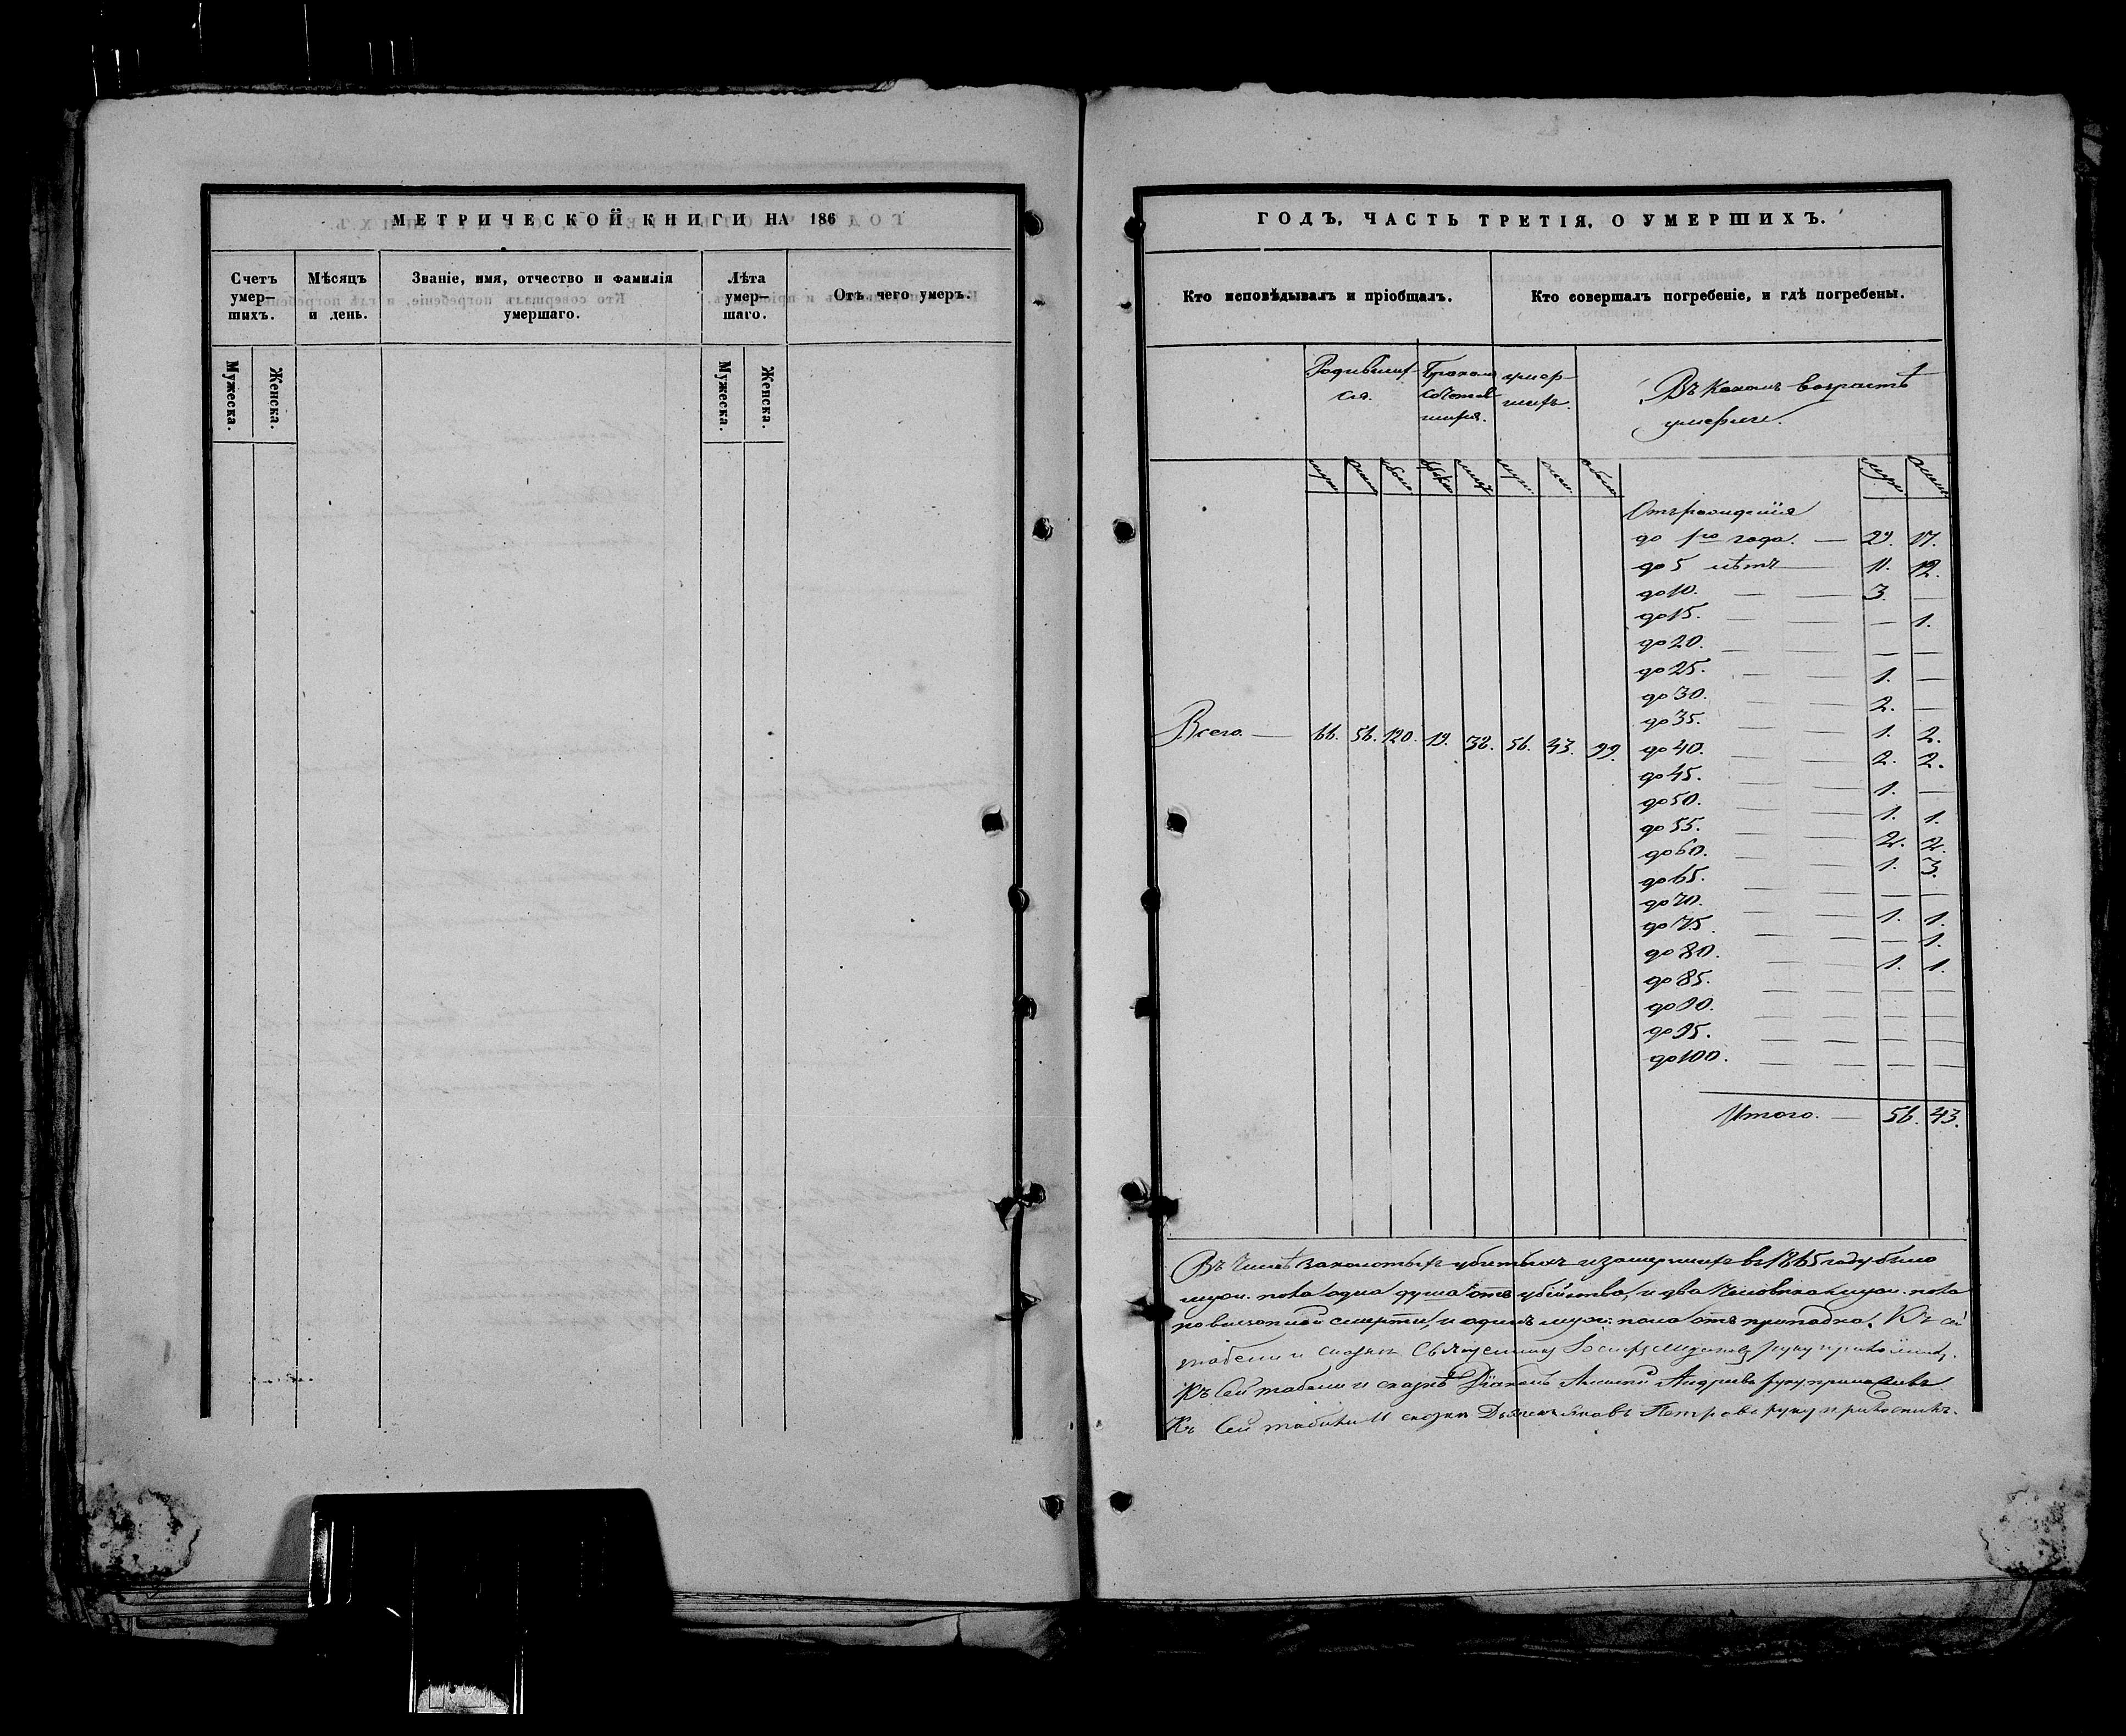 МЕТРИЧЕСКОЙ КНИГИ НА 186
Счетъ умер-шихъ.
Мѣсяцъ и день.
Званіе, имя, отчество и фамилія умершаго.
Лѣта умер-шаго.
Отъ чего умеръ.
Мужеска.
Женска.
Мужеска.
Женска.
ГОДЪ, ЧАСТЬ ТРЕТІЯ, О УМЕРШИХЪ.
Кто исповѣдывалъ и пріобщалъ.
Кто совершалъ погребеніе, и гдѣ погребены.
Родивших-ся.
Бракомъ сочетав-шихся.
умер-шихъ.
Въ какомъ возрастѣ
умерли.
Отъ рожденія
до 1го года. — 29. 17.
до 5 лѣтъ — 11. 12.
до 10. — — 3. —
до 15. — — — 1.
до 20. — — — —
до 25. — — 1. —
до 30. — — 2. —
до 35. — — 1. 2.
Всего. — 66. 56. 120. 19. 38. 56. 43. 99.
до 40. — — 2. 2.
до 45. — — 1. —
до 50. — — 1. 1.
до 55. — — 2. 2.
до 60. — — 1. 3.
до 65. — — — —
до 70. — — 1. 1.
до 75. — — — 1.
до 80. — — 1. 1.
до 85. — — — —
до 90. — — — —
до 95. — — — —
до 100. — — — —
Итого. — 56. 43.
Въ числѣ убитыхъ и замершихъ въ 1865 году было
муж. пола одна душа отъ убійства, и два человѣка муж. пола
смерти, и одинъ муж: пола отъ припадка. Къ сей
табели и сказкѣ Священникъ руку приложилъ.
Къ сей табели и сказкѣ Діаконъ Андреевъ руку приложилъ.
Къ сей табели и сказкѣ Дьячекъ Яковъ Петровъ руку приложилъ.